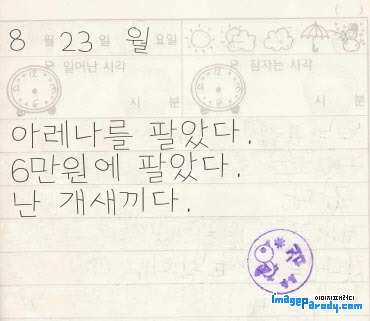 ( )
8 월 23 일 월 요일
일어난 시각
잠자는 시각
시 분
시 분
아레나를 팔았다.
6만원에 팔았다.
난 개새끼다.
이미지패러디
imageparody.com